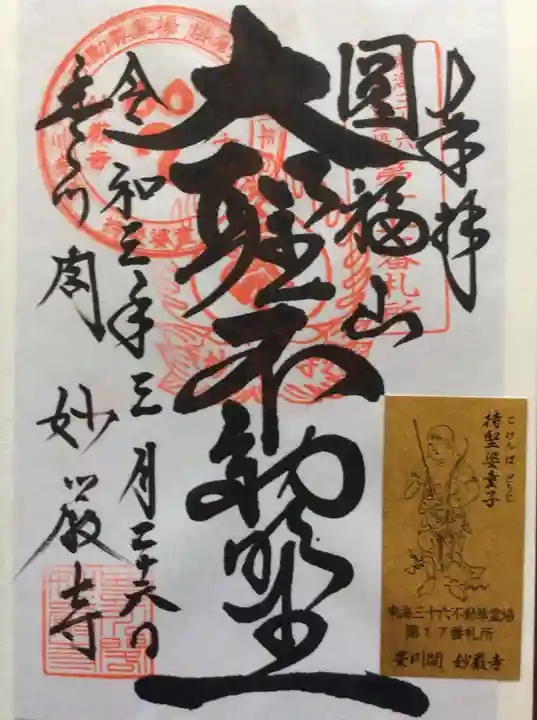 奉拝
圓福山
大聖不動尊
令和三年三月二十六日
豊川閣 妙嚴寺
東海三十六不動尊霊場
持堅婆童子
じけんばどうじ
東海三十六不動尊霊場
第17番札所
豊川閣 妙厳寺